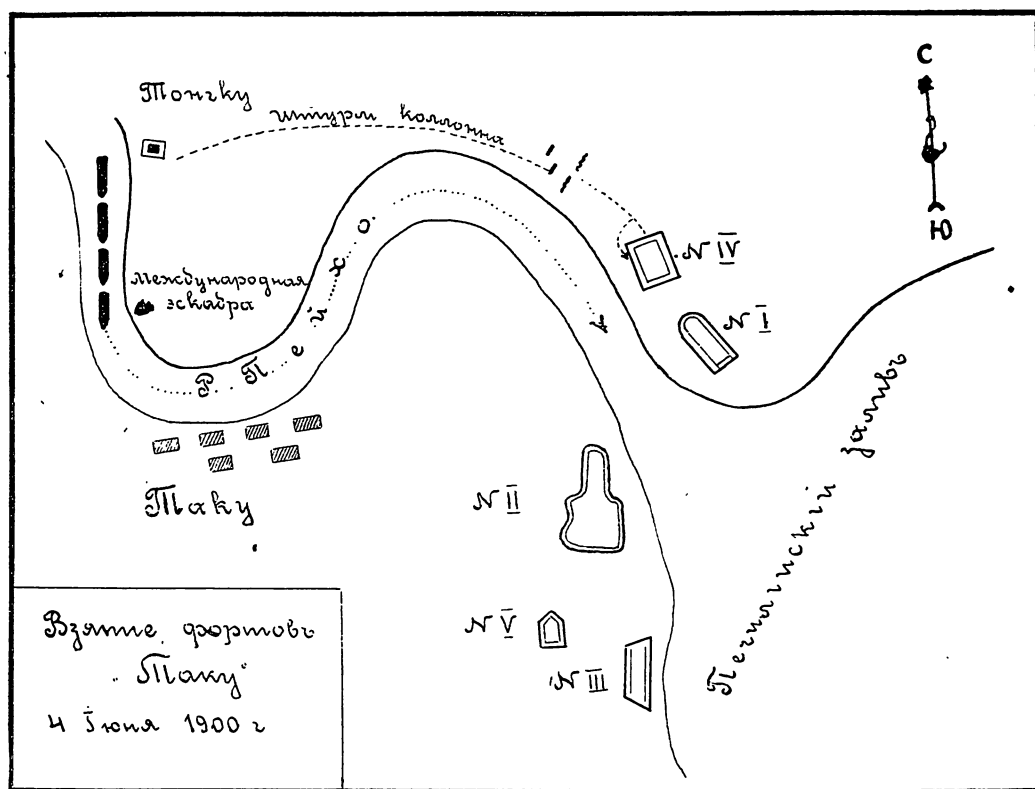 С
Ю
Тонгку
штурм коллонна
международная
эскадра
Р. Пейхо.
N IV
N I
N II
N V
N III
Таку
Печилийскій заливъ
Взятие фортовъ
"Таку"
4 Iюня 1900 г